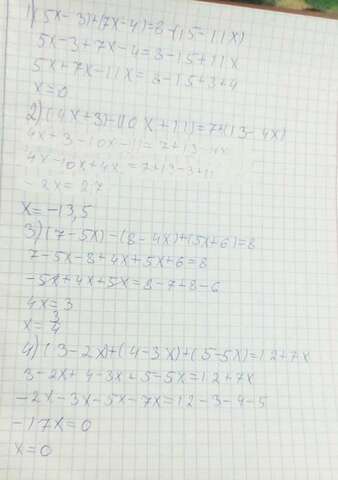 1) (5x-3)+(7x-4)=8-(15-11x)
5x-3+7x-4=8-15+11x
5x+7x-11x=8-15+3+4
x=0
2) (4x+3)-(10x+11)=7+(13-4x)
4x+3-10x-11=7+13-4x
4x-10x+4x=7+13-3+11
-2x=27
x=-13,5
3) (7-5x)-(8-4x)+(5x+6)=8
7-5x-8+4x+5x+6=8
-5x+4x+5x=8-7+8-6
4x=3
x=3/4
4) (3-2x)+(4-3x)+(5-5x)=12+7x
3-2x+4-3x+5-5x=12+7x
-2x-3x-5x-7x=12-3-4-5
-17x=0
x=0